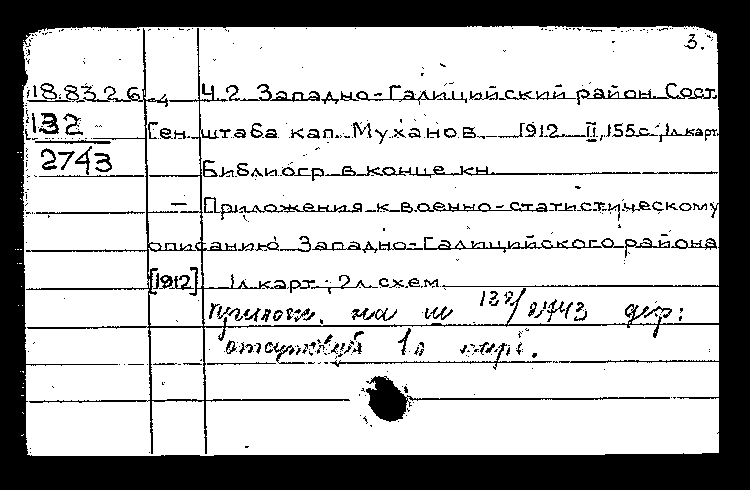 3.
18.83.2.6-4 Ч.2. Западно-Галицийский район. Сост.
132 Ген. штаба кап. Муханов. 1912. II, 155с.; 1л карт.
2743
Библиогр. в конце кн.
— Приложения к военно-статистическому
описанию Западно-Галицийского района
[1912] 1л карт.; 2л схем.
132/2743 деф:
отсутствует 1л карт.